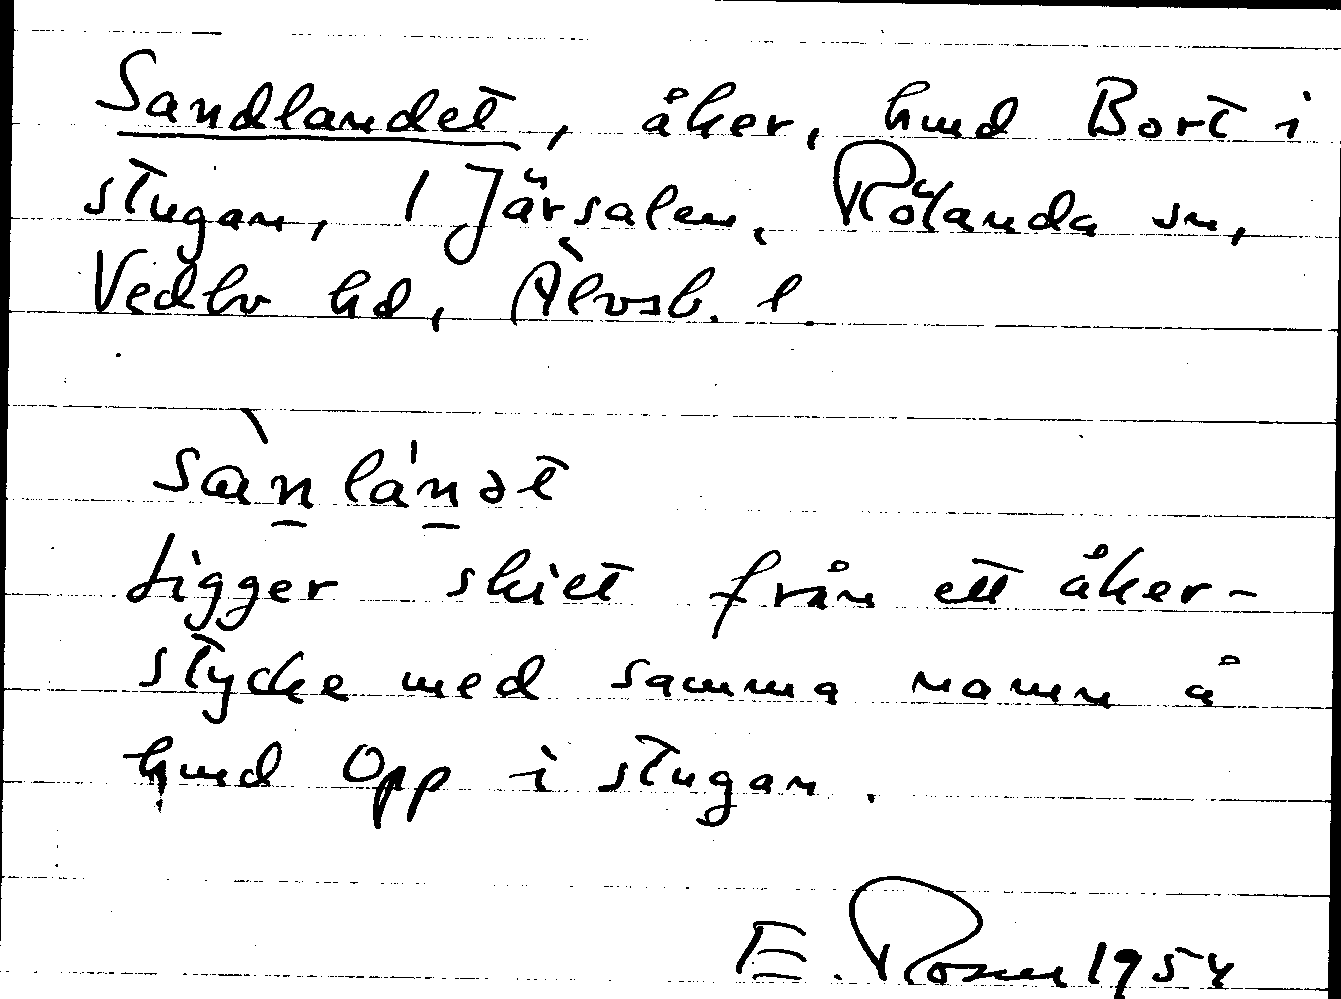 Sandlandet, åker, hmd Bort i
stugan, 1 Järsalen, Rölanda sn,
Vedbo hd, Älvsb. l.
sànlánət
Ligger skiet från ett åker-
stycke med samma namn å
hmd Opp i stugan.
E. Rosen 1954